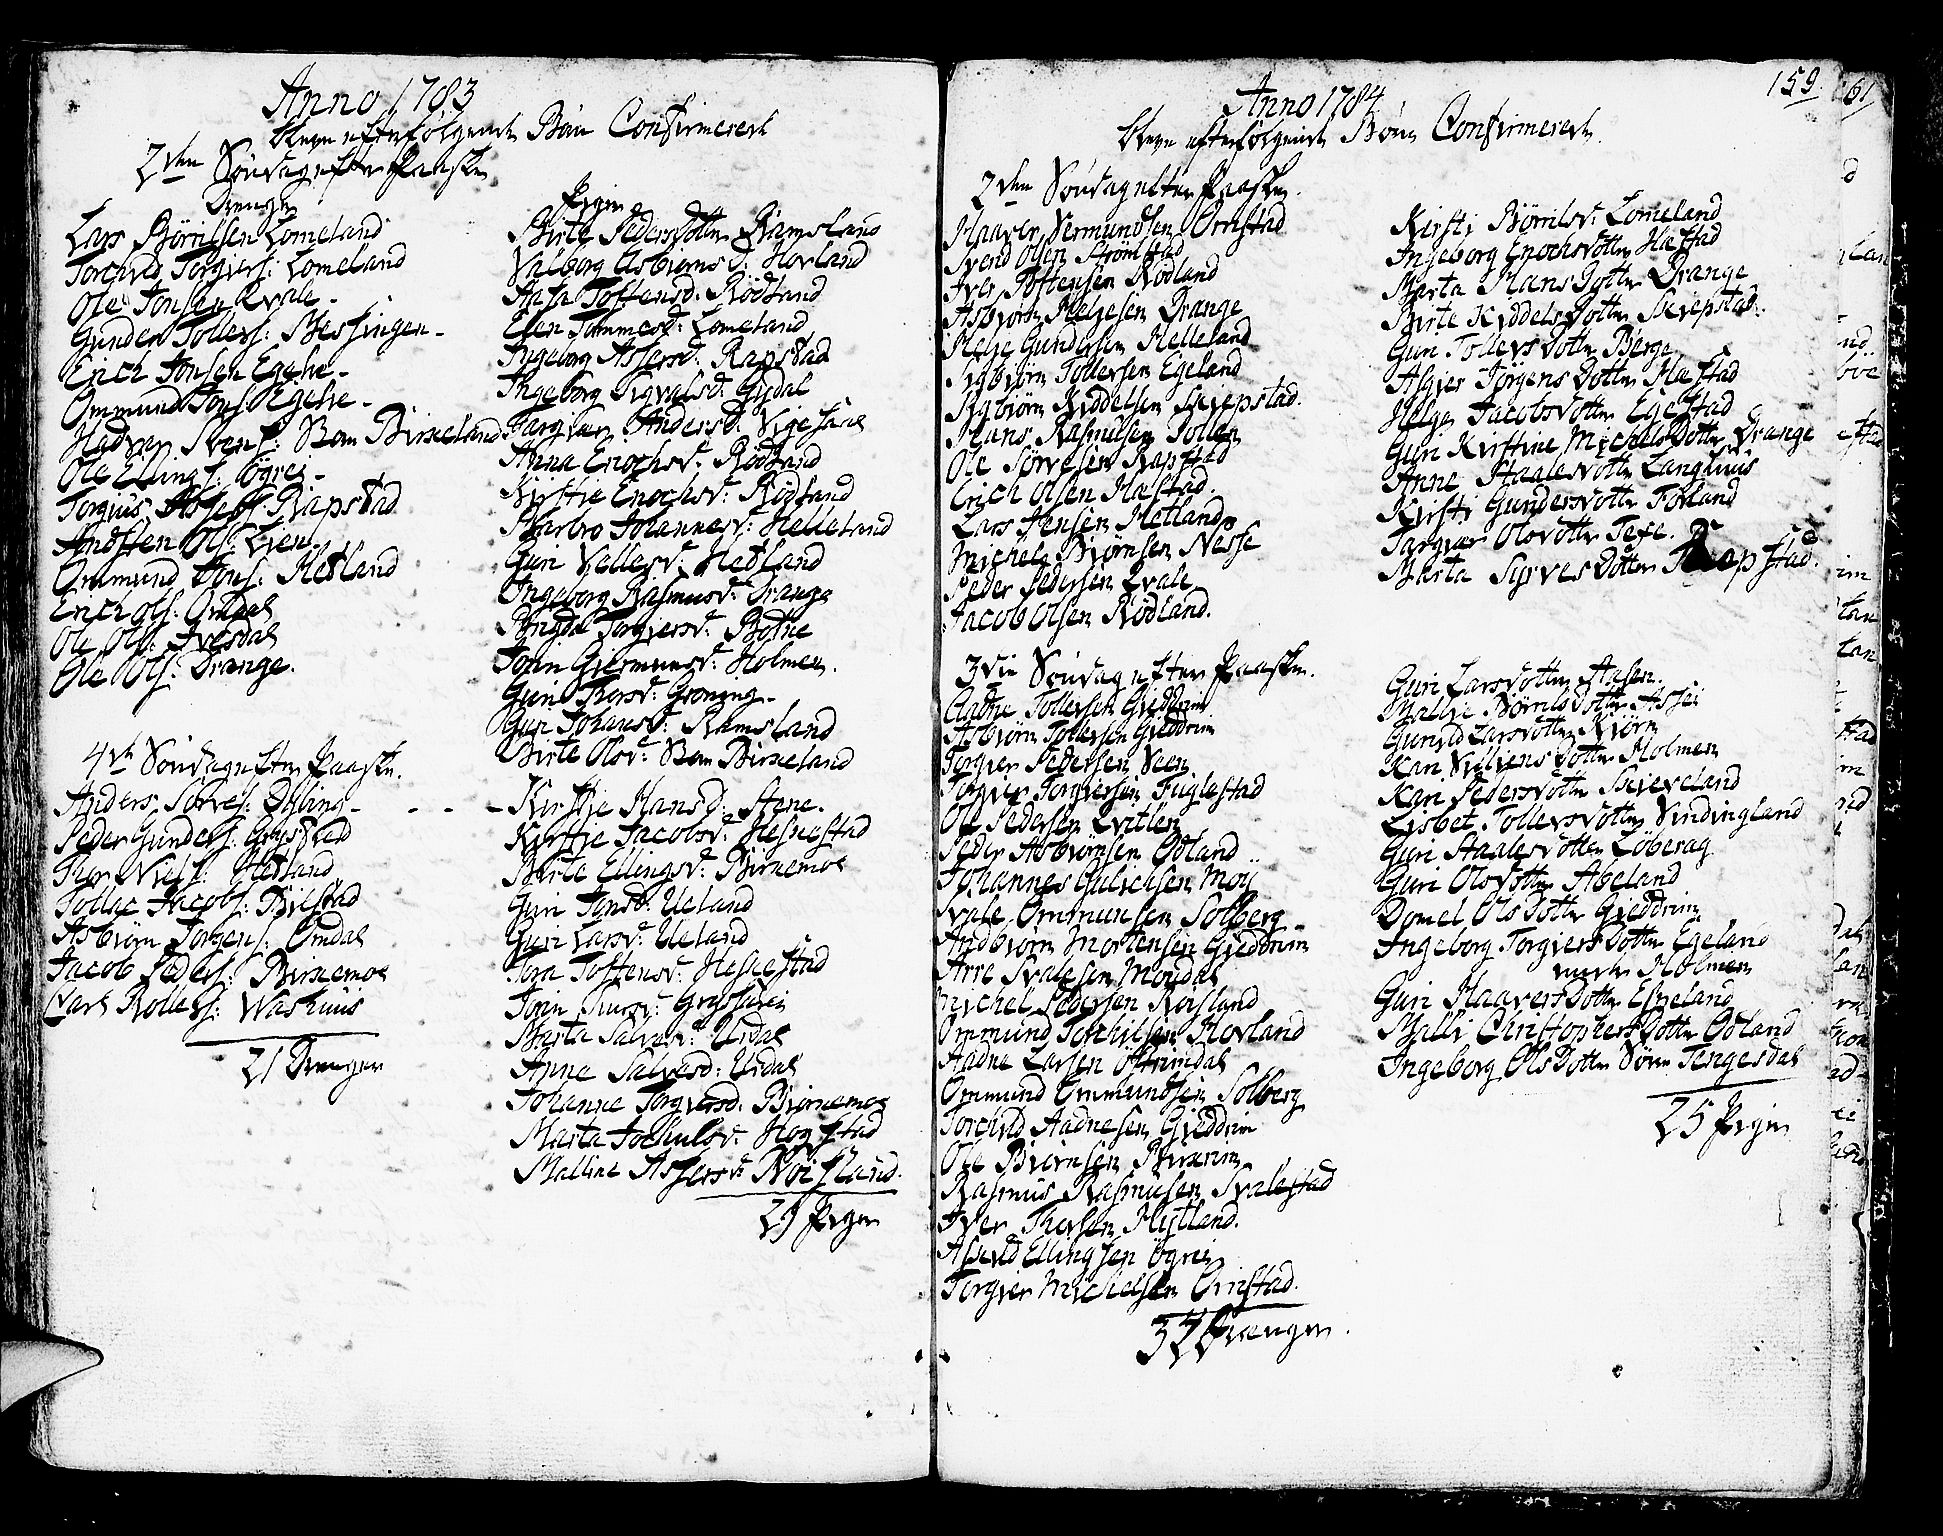 Anno 1783
bleve efterfølgende Børn Confirmerede
2den Søndag efter Paaske
Drenge
Lars Børrilsen Lomeland
Torchild Torgiers: Lomeland
Ole Jonsen Qvale -
Gunder Tollers: Messingen -
Erich Jonsen Egehe -
Ommund Jons: Egehe -
Hadver Svens: Birkeland
Ole Ellings: Øgrei -
Torgius Assers: Rapstad
Andsten Ols: Lien
Ommund Jons: Hetland
Erich Ols: Omdal
Ole Ols: Ivesdal
Ole Ols: Drange.
4de Søndag efter Paaske.
Anders Sørves: Østing -
Peder Gunders: Grøsstad
Thor Niels: Hetland
Tollac Jacobs: Bilstad
Asbiørn Jørgens: Omdal
Jacob Peders: Birkemoe
Lars Rollefs: Washuus
21 Drenger
Piger
Birte Pedersdotter Ramsland
Valborg Asbiørns d: Hovland
Anna Tostensd: Rødland
Elen Tommesd: Lomeland
Ingeborg Assersd: Rapstad
Ingeborg Sigvalsd: Gydal
Targiær Andersd: Vigesaae
Anna Enochsd: Rødland
Kirstie Enochsd: Rødland
Johannesd: Helleland
Guri Vellesd: Hetland
Ingeborg Rasmusd: Drange
Torgiersd: Bothe
Jorin Giermunsd: Holmen.
Guri Thorsd: Grøning -
Guri Johansd: Ramsland
Birte Olsd: Birkeland
Kirstie Hansd: Stene.
Kirstie Jacobsd: Hesnestad
Birte Ellingsd: Birnemoe
Guri Jonsd: Ueland
Guri Larsd: Ueland
Tora Tostensd: Hesnestad
Marta Salvesd: Urdal
Anna Salvesd: Urdal
Johanne Torgiersd: Birnemoe
Marta Jochulsd: Hogstad
Malline Assersd: Noisland.
29 Piger
159
61
Anno 1784
bleve efterfølgende Børn Confirmerede.
2den Søndag efter Paaske.
Haaver Vermundsen Ørnstad
Svend Olsen Strømstad
Iver Tostensen Rødland
Asbiørn Helgesen Drange
Helje Gundersen Helleland
Sigbiørn Tollersen Egeland
Sigbiørn Kiddelsen Skiepstad.
Hans Rasmusen Tollen
Ole Sørvesen Rapstad
Erich Olsen Hæstad.
Lars Jensen Hetland
Michele Biørnsen Nesse
Peder Pedersen Qvale
Jacob Olsen Rødland.
3die Søndag efter Paaske.
Aadne Tollersen Gieddrim
Asbiørn Tollersen Gieddrim
Torgier Pedersen Veen
Torgier Torgiersen Fuglestad
Ole Pedersen Qvitlen
Peder Asbiørnsen Odland
Johannes Gulichsen Moy
Svale Ommunsen Solberg -
Andbiørn Mortensen Gieddrim
Arre Svalesen Moydal
Michel Pedersen Roisland
Ommund Torchilsen Hovland
Aadne Larsen Østrimdal
Ommund Ommundsen Solberg
Torchild Aadnesen Gieddrim
Ole Biørnsen Birkrim
Rasmus Rasmusen Svalestad
Iver Thorsen Mistland.
Askild Ellingsen Øgrei
Torgier Michelsen Ørnstad.
37 Drenger.
Kirsti Børrilsd: Lomeland
Ingeborg Enochsdotter Hæstad
Marta Hans Dotter Drange
Birte Kiddels Dotter Skiepstad.
Guri Tollevs Dotter Berge
Asgier Jørgens Dotter Hæstad
Helge Jacobsdotter Egestad
Guri Kirstine Michels Dotter Drange
Anne Staalesdotter Langhuus
Kirsti Gundersdotter Førland
Targiær Olsdotter Texe.
Marta Syrves Dotter Rapstad.
Guri Larsdotter Aasen.
Mallie Børrilsdotter Assei
Gunild Larsdotter Kiørn
Kari Villiens Dotter Holmen
Kari Pedersdotter Skieveland
Lisbet Tollevsdotter Sindingland
Guri Staalesdotter Løberag
Guri Olsdotter Abeland
Domel Ols Dotter Gieddrim
Ingeborg Torgiers Dotter Egeland
Holmen
Guri Haavers Dotter Espeland
Malli Christophers Dotter Odland
Ingeborg Ols Dotter Søre Tengesdal
25 Piger